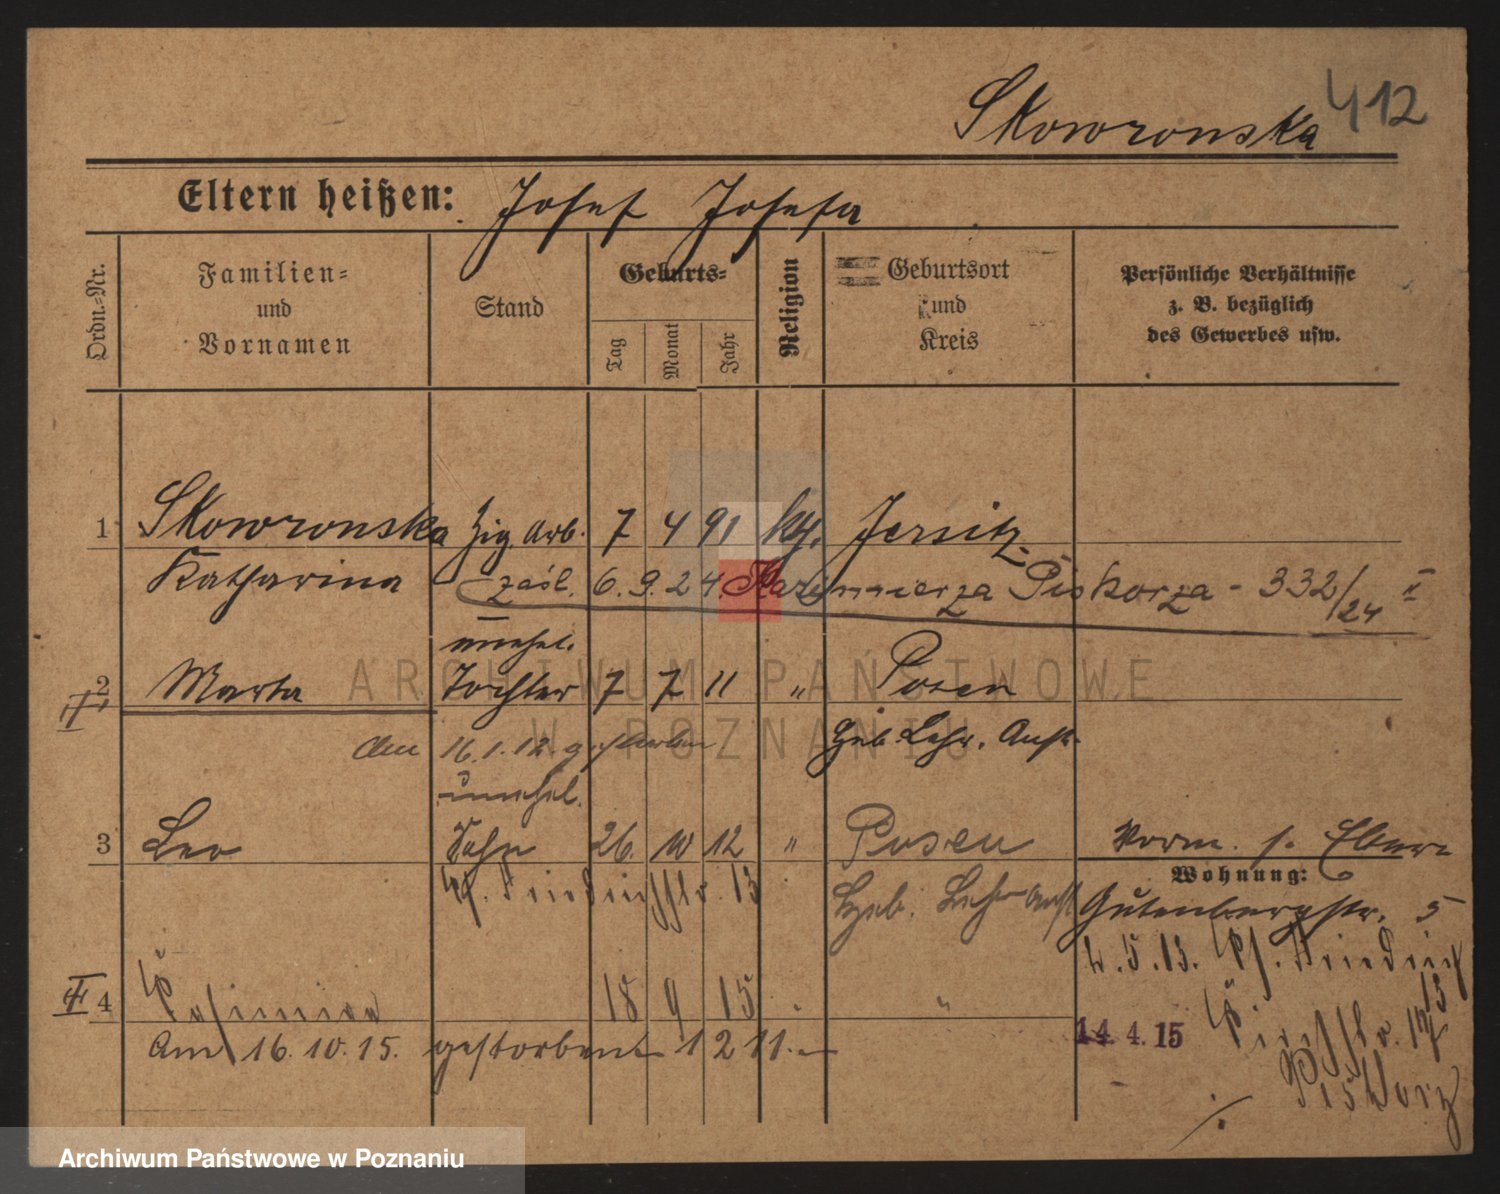 Skowronska 412
Eltern heißen: Josef Josefa
Ordn.-Nr.
Familien-
und
Vornamen
Stand
Geburts-
Tag
Monat
Jahr
Religion
Geburtsort
und
Kreis
Persönliche Verhältnisse
z. B. bezüglich
des Gewerbes usw.
1 Skowronska Zig. Arb. 7 4 91 kth. Jersitz
Katharina zaśl. 6.9.24. Kazimierza Piskorza - 332/24 I
unehel.
2 Marta Tochter 7 7 11 " Posen
Geb. Lehr. Anst.
den 16.1.12. gestorben
unehel.
3 Leo Sohn 26. 10 12 " Posen
Vorm. s.
Wohnung:
13 Geb. Lehr Anst Gutenbergstr. 5
4.5.13. Friedrich
4 18 9 15 "
14.4.15
Am 16.10.15. gestorben 1211.
Piskorz
ARCHIWUM PAŃSTWOWE
W POZNANIU
Archiwum Państwowe w Poznaniu